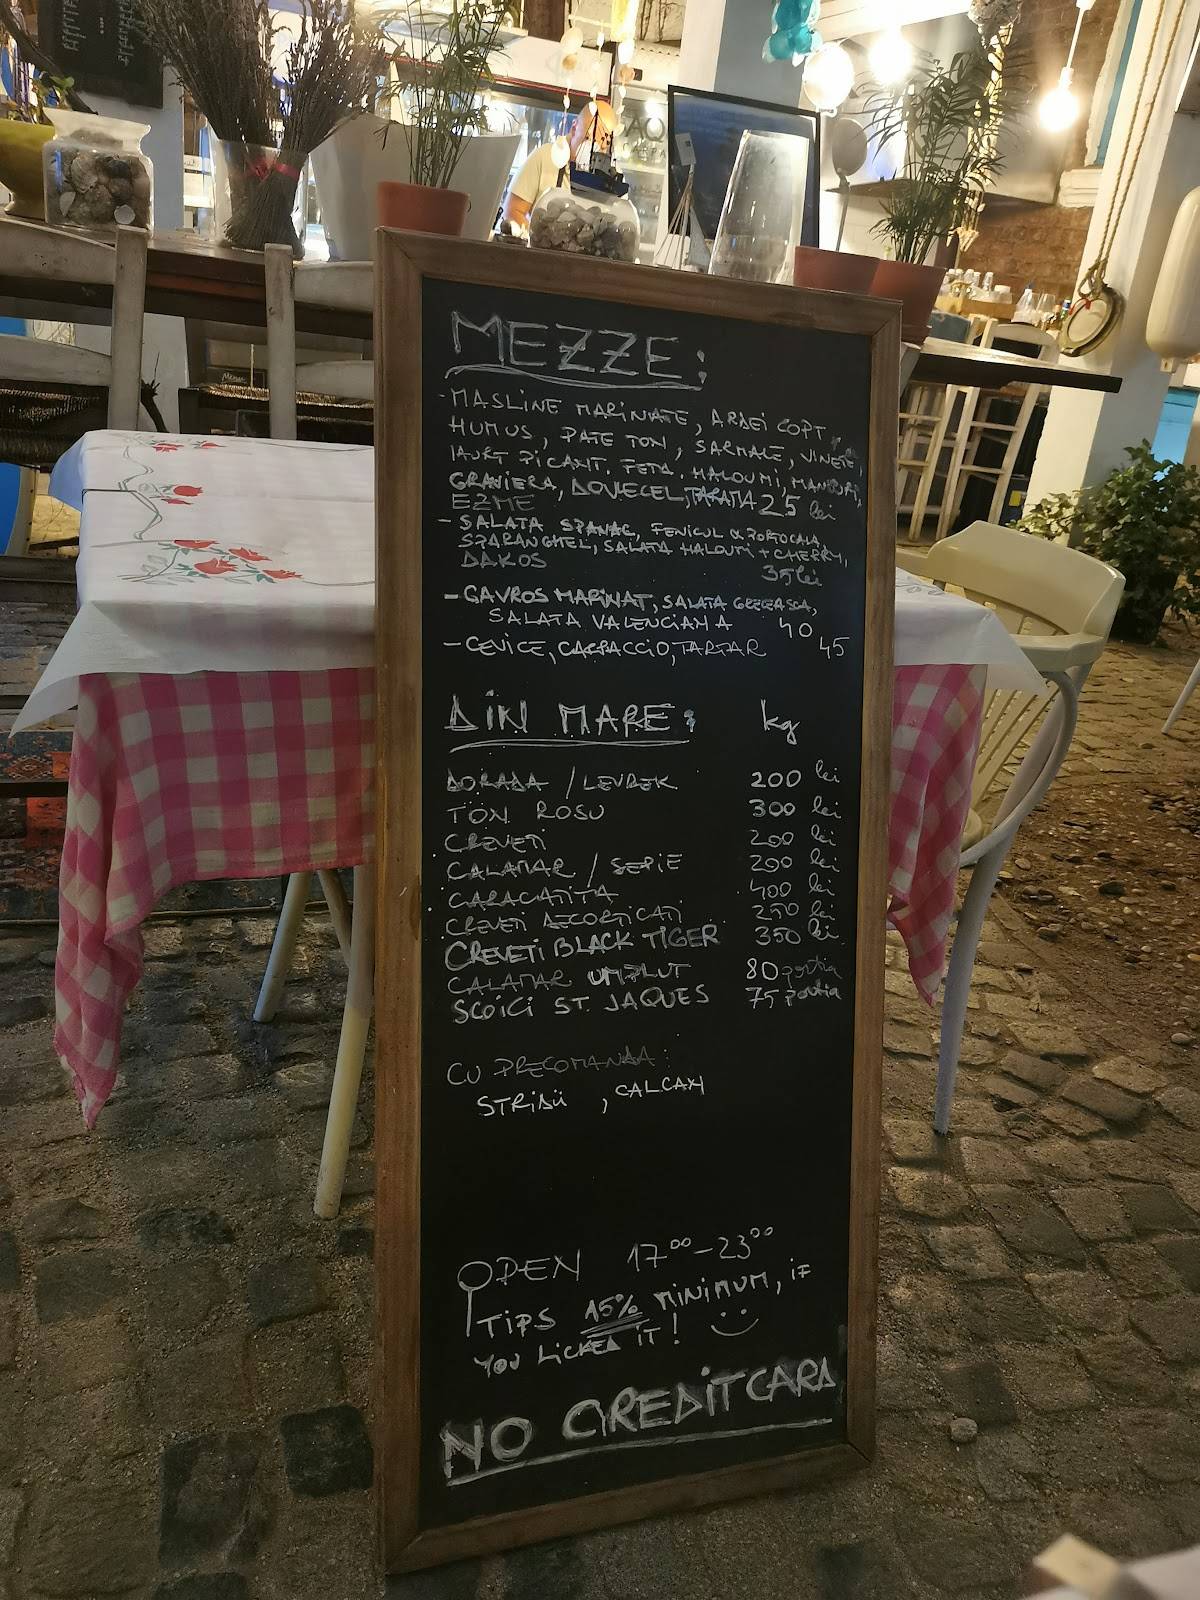 MEZZE:
- MASLINE MARINATE, ARDEI COPT,
HUMUS, PATE TON, SARMALE, VINETE,
IAURT PICANT, FETA, HALOUMI, MANOURI,
GRAVIERA, DOVLECEL, TARAMA 25 lei
EZME
- SALATA SPANAC, FENICUL & PORTOCALA,
SPARANGHEL, SALATA HALOUMI + CHERRY,
DAKOS 35 lei
- GAVROS MARINAT, SALATA GRECEASCA,
SALATA VALENCIANA 40
- CEVICE, CARPACCIO, TARTAR 45
DIN MARE: kg
DORADA / LEVREK 200 lei
TON ROSU 300 lei
CREVETI 200 lei
CALAMAR / SEPIE 200 lei
CARACATITA 400 lei
CREVETI DECORTICATI 250 lei
CREVETI BLACK TIGER 350 lei
CALAMAR UMPLUT 80 portia
SCOICI ST. JAQUES 75 portia
CU PRECOMANDA:
STRIDII, CALCAN
OPEN 17 00 - 23 00
TIPS 15% MINIMUM, IF
YOU LICKED IT!
NO CREDIT CARD